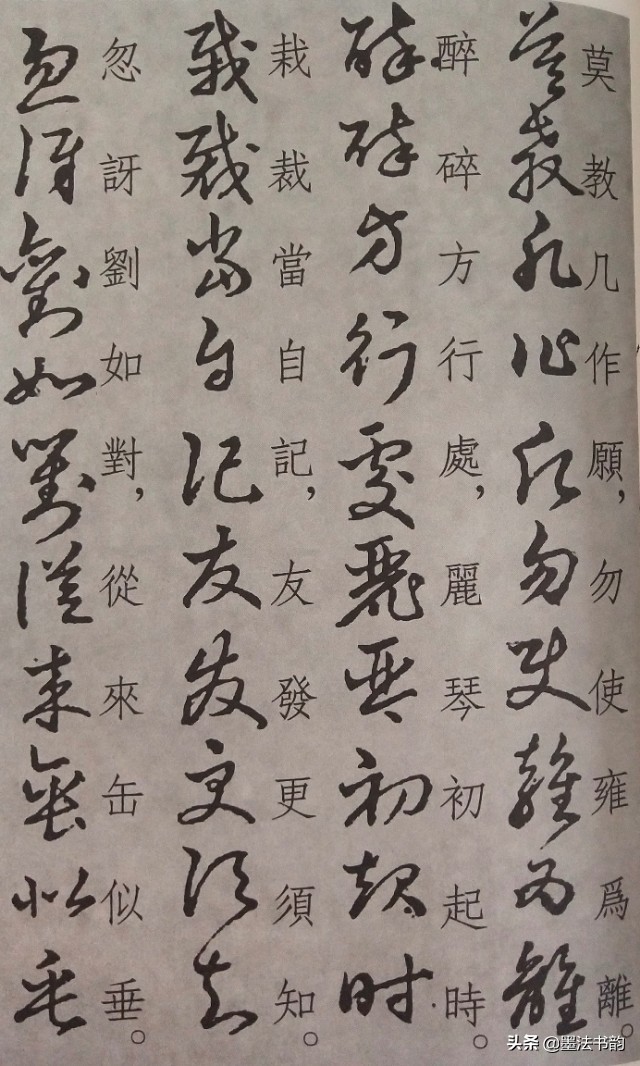 莫教几作願，勿使雍爲離。
醉碎方行處，麗琴初起時。
栽裁當自記，友發更須知。
忽訝劉如對，從來缶似垂。
头条 @墨法书韵